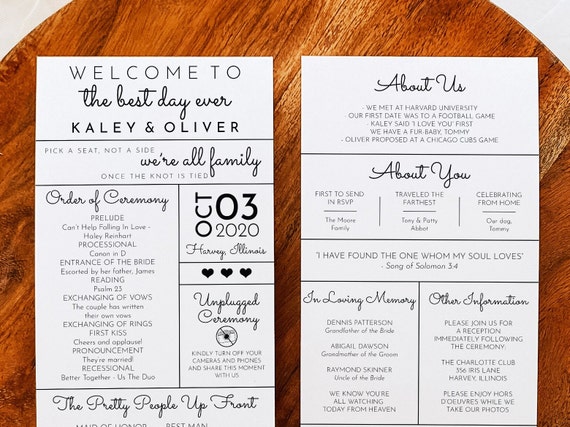 WELCOME TO
the best day ever
KALEY & OLIVER
PICK A SEAT, NOT A SIDE
we're all family
ONCE THE KNOT IS TIED
Order of Ceremony
PRELUDE
Can't Help Falling In Love -
Haley Reinhart
PROCESSIONAL
Canon in D
ENTRANCE OF THE BRIDE
Escorted by her father, James
READING
Psalm 23
EXCHANGING OF VOWS
The couple has written
their own vows
EXCHANGING OF RINGS
FIRST KISS
Cheers and applause!
PRONOUNCEMENT
They're married!
RECESSIONAL
Better Together - Us The Duo
OCT
03
2020
Harvey, Illinois
Unplugged
Ceremony
KINDLY TURN OFF YOUR
CAMERAS AND PHONES
AND SHARE THIS MOMENT
WITH US
The Pretty People Up Front
MAID OF HONOR
BEST MAN
About Us
- WE MET AT HARVARD UNIVERSITY
OUR FIRST DATE WAS TO A FOOTBALL GAME
- KALEY SAID 'I LOVE YOU' FIRST
WE HAVE A FUR-BABY, TOMMY
- OLIVER PROPOSED AT A CHICAGO CUBS GAME
About You
FIRST TO SEND
IN RSVP
The Moore
Family
TRAVELED THE
FARTHEST
Tony & Patty
Abbot
CELEBRATING
FROM HOME
Our dog,
Tommy
'I HAVE FOUND THE ONE WHOM MY SOUL LOVES'
- Song of Solomon 3:4
In Loving Memory
DENNIS PATTERSON
Grandfather of the Bride
ABIGAIL DAWSON
Grandmother of the Groom
RAYMOND SKINNER
Uncle of the Bride
WE KNOW YOU'RE
ALL WATCHING
TODAY FROM HEAVEN
Other Information
PLEASE JOIN US FOR
A RECEPTION
IMMEDIATELY FOLLOWING
THE CEREMONY:
THE CHARLOTTE CLUB
356 IRIS LANE
HARVEY, ILLINOIS
PLEASE ENJOY HORS
D'OEUVRES WHILE WE
TAKE OUR PHOTOS